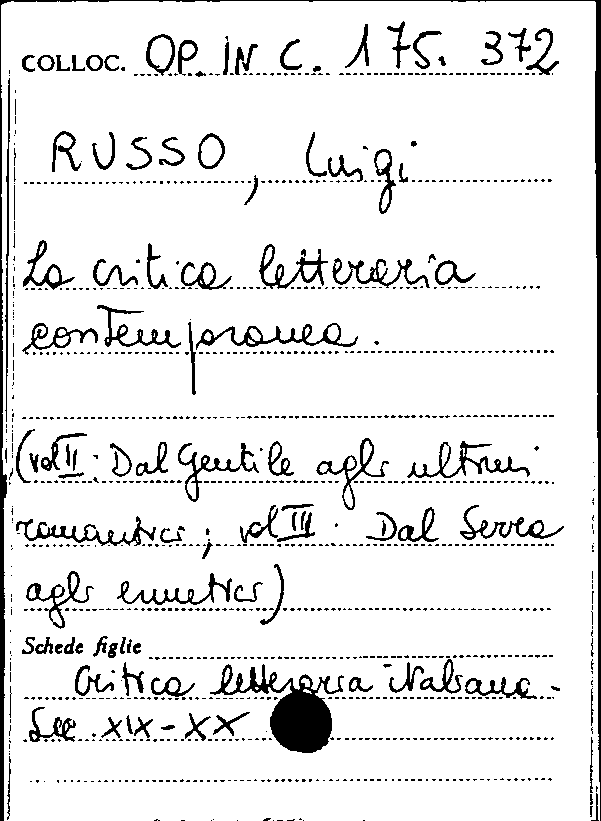 COLLOC. OP. IN C. 175. 372
RUSSO, Luigi
La critica letteraria
contemporanea.
(vol II: Dal Gentile agli ultimi
romantici; vol III. Dal Serra
agli ermetici)
Schede figlie
Critica letteraria italiana -
Sec. XIX-XX